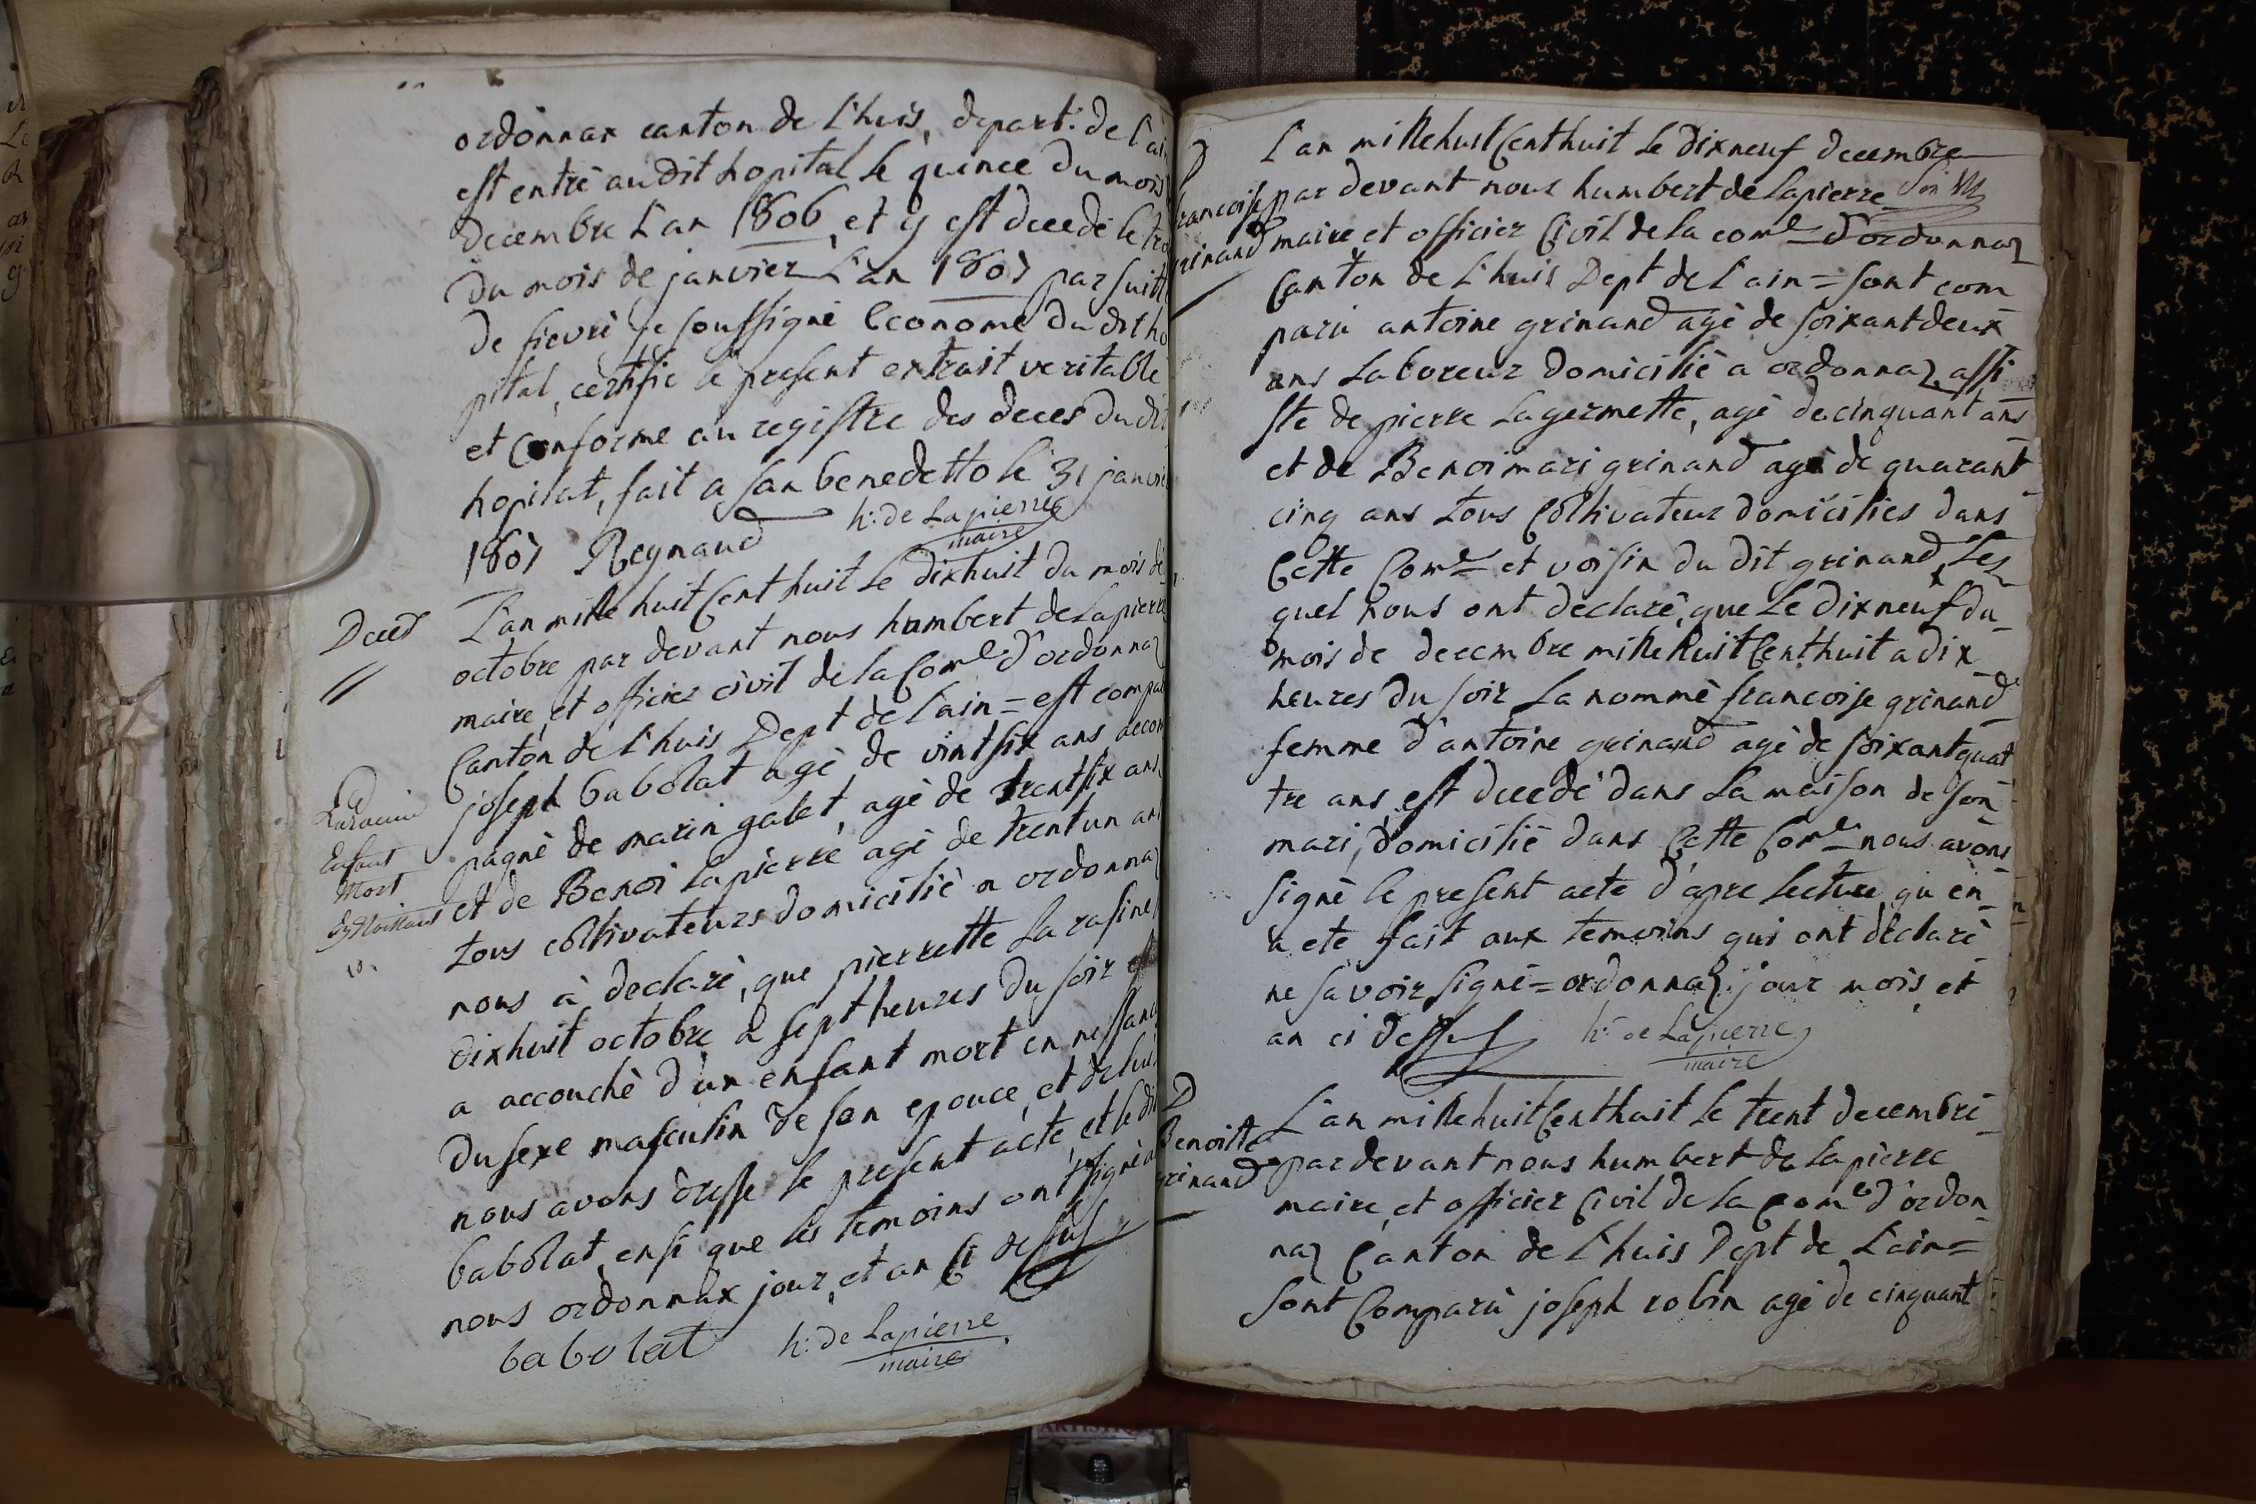 ordonnax canton de l'huis, depart.t de l'ain
est entré audit hopital le quince du mois
decembre l'an 1806, et y est decedé le
du mois de janvier l'an 1807 par suitte
de fievre je soussigné Econome du dit ho
pital, certifie le present extrait veritable
et conforme au registre des deces du dit
hopital, fait a san benedetto le 31 janvie
1807 Reynaud h: de Lapierre
maire
Deced
L'an mille huit Cent huit le dixhuit du mois de
octobre par devant nous humbert de Lapierre
maire, et officier civil de la Com.e d'ordonnaz
Canton de l'huis Dept de l'ain = est comparu
joseph babolat agé de vintsix ans accom
pagné de marin galet, agé de trentsix ans,
Enfant
Mort
et de Benoi Lapierre agé de trentun ans
tous coltivateurs domicilié a ordonnaz
nous à declaré, que pierrette La rasine,
dixhuit octobre a sept heures du soir est
a accouché d'un enfant mort en nessance
du sexe masculin de son epouce, et de lui
nous avons dresse le present acte, et le dit
babolat, ensi que les temoins ont signé
nous ordonnax jour, et an ci dessus
babolat h: de Lapierre
maire
D
francoise
grinand
L'an mille huit Cent huit le dixneuf decembre
par devant nous humbert de Lapierre
maire et officier Civil de la com.e d'ordonnaz
Canton de l'huis Dept de l'ain = sont com
paru antoine grinand agé de soixantdeux
ans Laboreur domicilié a ordonnaz, assi
ste de pierre Lagermette, agé de cinquant ans
et de Benoimari grinand agé de quarant
cinq ans tous Coltivateur domicilies dans
Cette Com.e et voisin du dit grinand, Les
quel nous ont declaré, que le dixneuf du
mois de decembre mille huit Cent huit a dix
heures du soir La nommé francoise grinand
femme d'antoine grinand agé de soixantquat
tre ans est decedé dans La maison de son
mari, domicilié dans Cette Com.e nous avons
signé le present acte d'apre lecture, qu en
a ete fait aux temoins qui ont declaré
ne savoir signé = ordonnaz jour mois, et
an ci dessus h: de Lapierre
maire
D
Benoitte
grinand
L'an mille huit Cent huit le trent decembre
par devant nous humbert de Lapierre
maire, et officier Civil de la Com.e d'ordon
naz Canton de l'huis Dept de L'ain =
sont Comparu joseph robin agé de cinquant